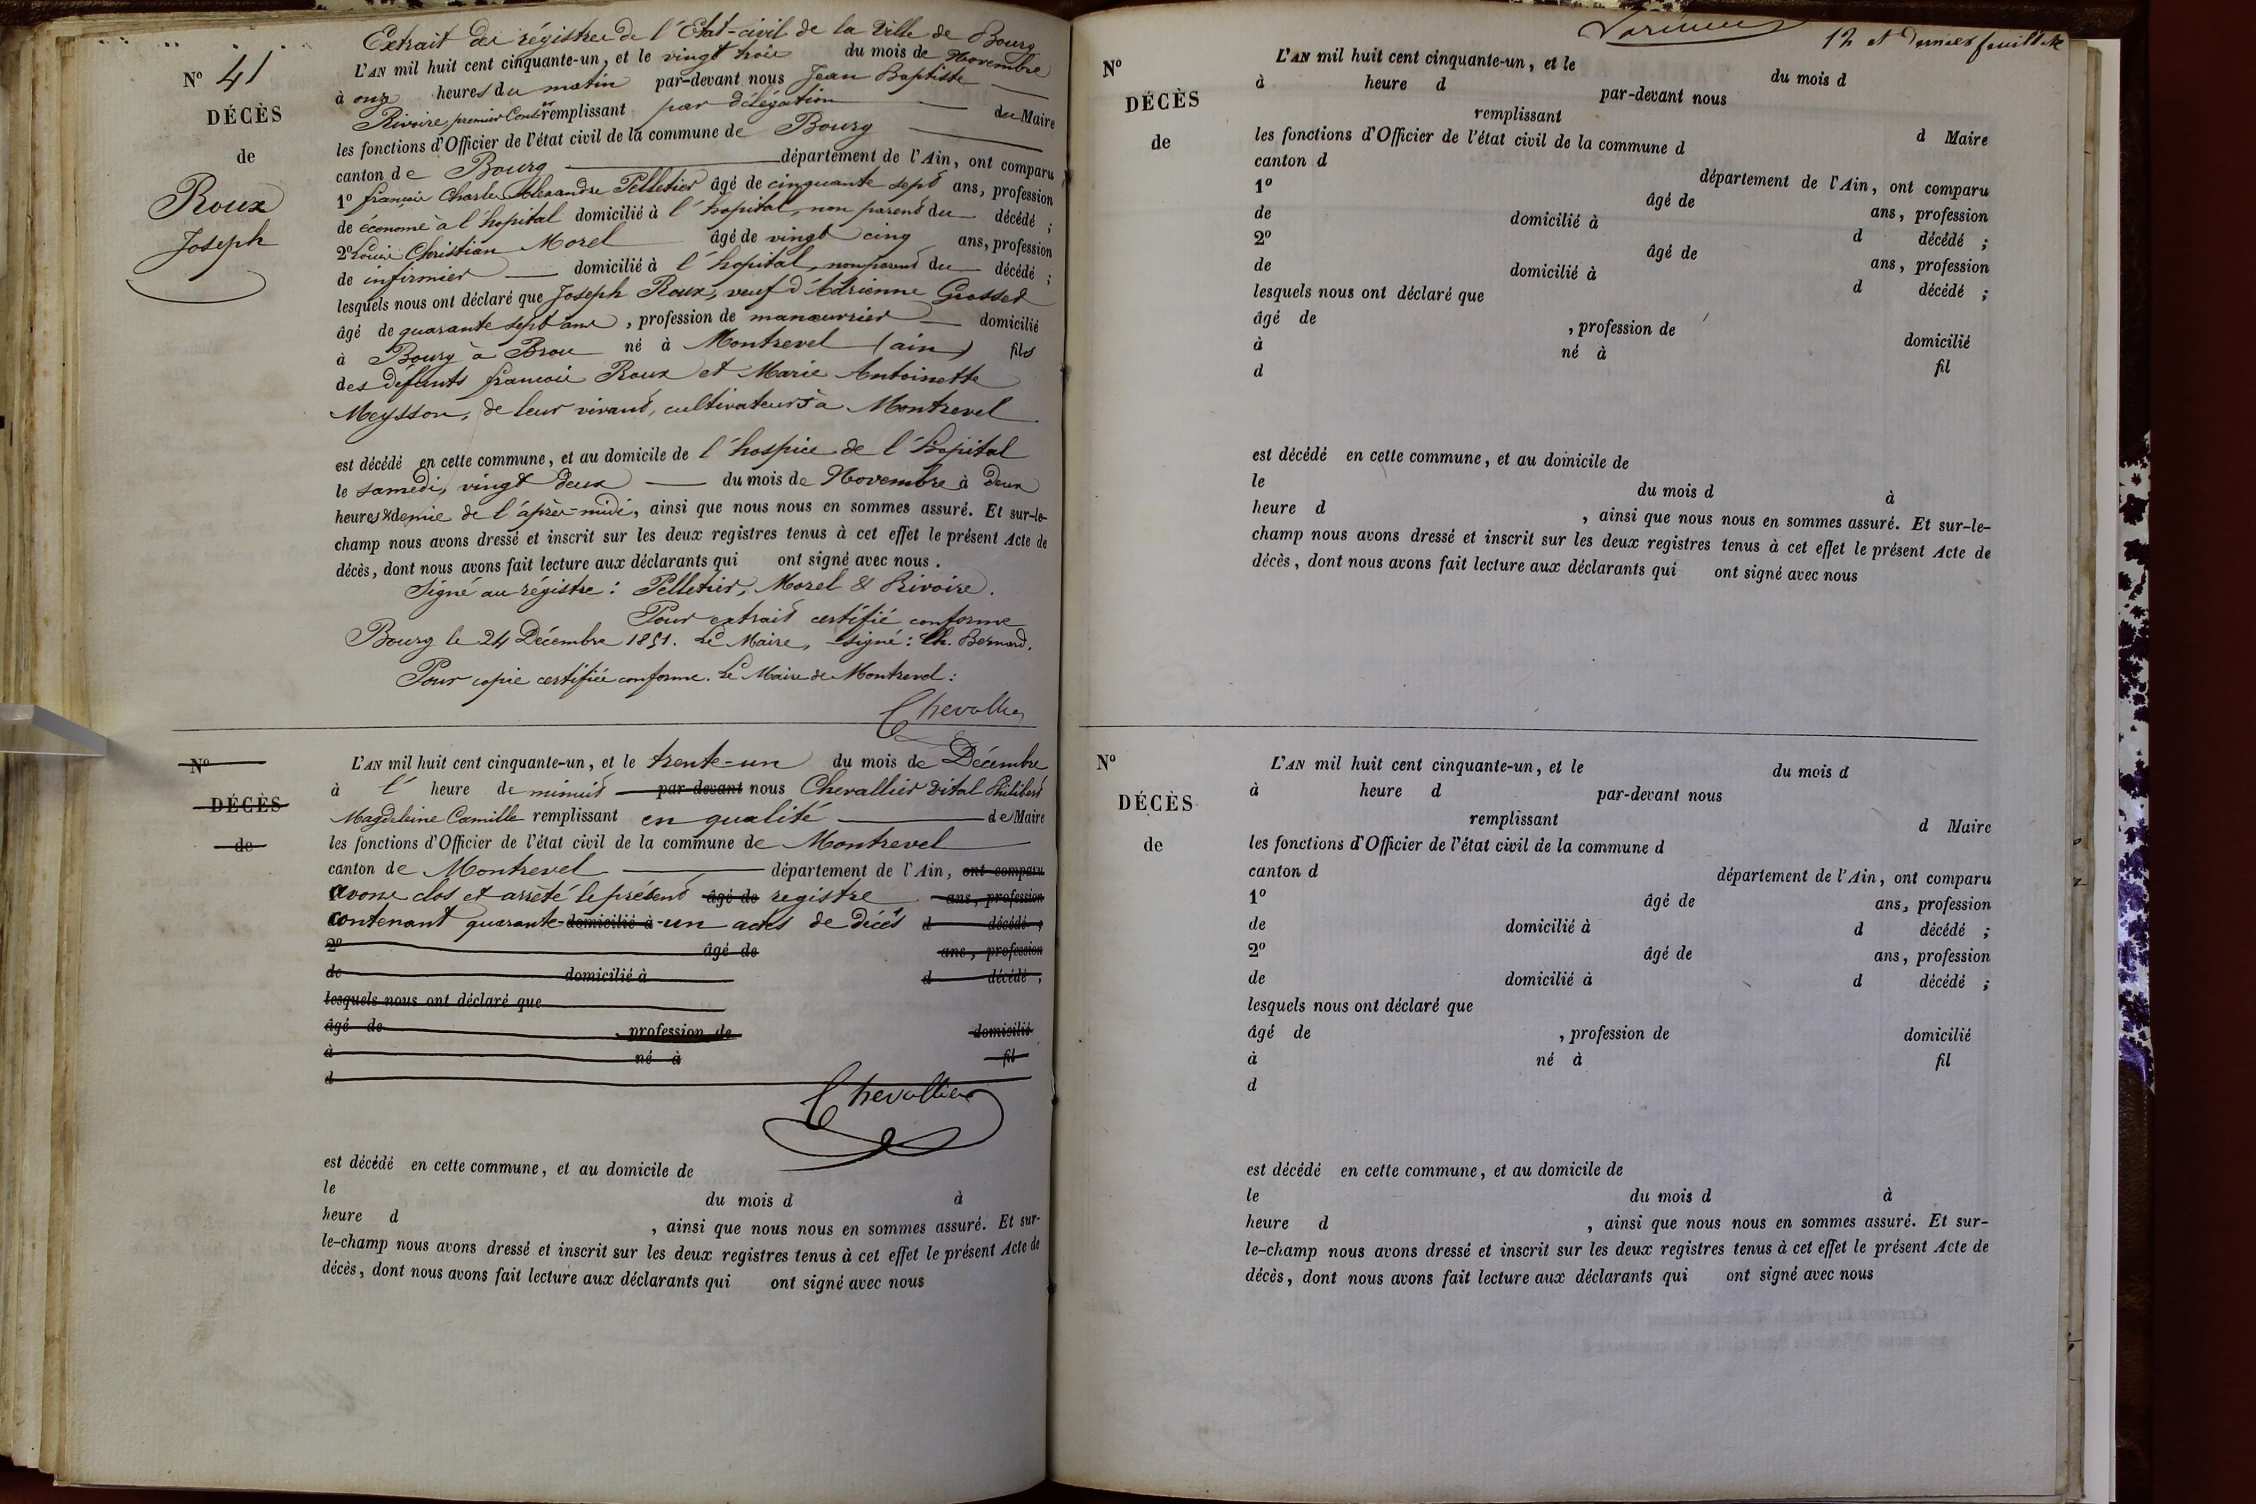 Extrait des régistres de l'Etat-civil de la Ville de Bourg
N° 41
DÉCÈS
de
Roux
Joseph
L'AN mil huit cent cinquante-un, et le vingt trois du mois de Novembre
à onze heures du matin par-devant nous Jean Baptiste
Rivoire, premier Cons.er remplissant par délégation du Maire
les fonctions d'Officier de l'état civil de la commune de Bourg
canton de Bourg département de l'Ain, ont comparu
1° françois Charles Alexandre Pelletier âgé de cinquante sept ans, profession
de économe à l'hopital domicilié à l'hopital, non parent du décédé ;
2° Louis Christian Morel âgé de vingt cinq ans, profession
de infirmier domicilié à l'hopital, non parent du décédé ;
lesquels nous ont déclaré que Joseph Roux, veuf d'Adrienne Grosset
âgé de quarante sept ans, profession de manœuvrier domicilié
à Bourg à Brou né à Montrevel (ain) fils
des défunts françois Roux et Marie Antoinette
Meysson, de leur vivant, cultivateurs à Montrevel
est décédé en cette commune, et au domicile de l'hospice de l'hopital
le samedi, vingt deux du mois de Novembre à deux
heures & demie de l'après-midi, ainsi que nous nous en sommes assuré. Et sur-le-
champ nous avons dressé et inscrit sur les deux registres tenus à cet effet le présent Acte de
décès, dont nous avons fait lecture aux déclarants qui ont signé avec nous.
Signé au régistre : Pelletier, Morel & Rivoire.
Pour extrait certifié conforme
Bourg le 24 Décembre 1851. Le Maire, signé : Ch. Bernard.
Pour copie certifiée conforme. Le Maire de Montrevel :
Chevallier
N°
DÉCÈS
de
L'AN mil huit cent cinquante-un, et le trente-un du mois de Décembre
à l' heure de minuit par-devant nous Chevallier Vital Philibert
Magdeleine Camille remplissant en qualité de Maire
les fonctions d'Officier de l'état civil de la commune de Montrevel
canton de Montrevel département de l'Ain, ont comparu
avons clos et arrêté le présent âgé de registre ans, profession
contenant quarante-domicilié à-un actes de décès d décédé ;
2° âgé de ans, profession
de domicilié à d décédé ;
lesquels nous ont déclaré que
âgé de , profession de domicilié
à né à fil
d
Chevallier
est décédé en cette commune, et au domicile de
le du mois d à
heure d , ainsi que nous nous en sommes assuré. Et sur-
le-champ nous avons dressé et inscrit sur les deux registres tenus à cet effet le présent Acte de
décès, dont nous avons fait lecture aux déclarants qui ont signé avec nous
12 et dernier feuillet
N°
DÉCÈS
de
L'AN mil huit cent cinquante-un, et le du mois d
à heure d par-devant nous
remplissant d Maire
les fonctions d'Officier de l'état civil de la commune d
canton d département de l'Ain, ont comparu
1° âgé de ans, profession
de domicilié à d décédé ;
2° âgé de ans, profession
de domicilié à d décédé ;
lesquels nous ont déclaré que
âgé de , profession de domicilié
à né à fil
d
est décédé en cette commune, et au domicile de
le du mois d à
heure d , ainsi que nous nous en sommes assuré. Et sur-le-
champ nous avons dressé et inscrit sur les deux registres tenus à cet effet le présent Acte de
décès, dont nous avons fait lecture aux déclarants qui ont signé avec nous
N°
DÉCÈS
de
L'AN mil huit cent cinquante-un, et le du mois d
à heure d par-devant nous
remplissant d Maire
les fonctions d'Officier de l'état civil de la commune d
canton d département de l'Ain, ont comparu
1° âgé de ans, profession
de domicilié à d décédé ;
2° âgé de ans, profession
de domicilié à d décédé ;
lesquels nous ont déclaré que
âgé de , profession de domicilié
à né à fil
d
est décédé en cette commune, et au domicile de
le du mois d à
heure d , ainsi que nous nous en sommes assuré. Et sur-
le-champ nous avons dressé et inscrit sur les deux registres tenus à cet effet le présent Acte de
décès, dont nous avons fait lecture aux déclarants qui ont signé avec nous